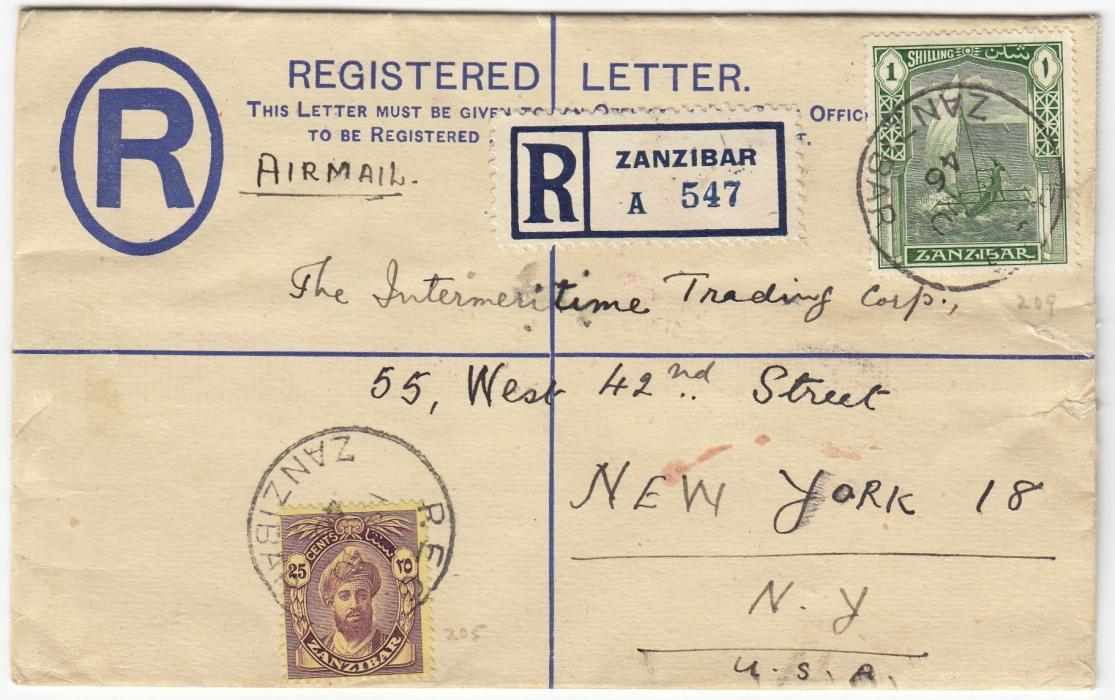 R
REGISTERED LETTER.
THIS LETTER MUST BE GIVEN TO AN OFFICE
TO BE REGISTERED
AIRMAIL.
R ZANZIBAR
A 547
1 SHILLING شلن ١
ZANZIBAR
ZANZIBAR
46
The Intermeritime Trading Corp.,
209
55, West 42nd Street
NEW YORK 18
N. Y
U. S. A.
ZANZIBAR
REG
25 CENTS سنتا ٢٥
ZANZIBAR
205